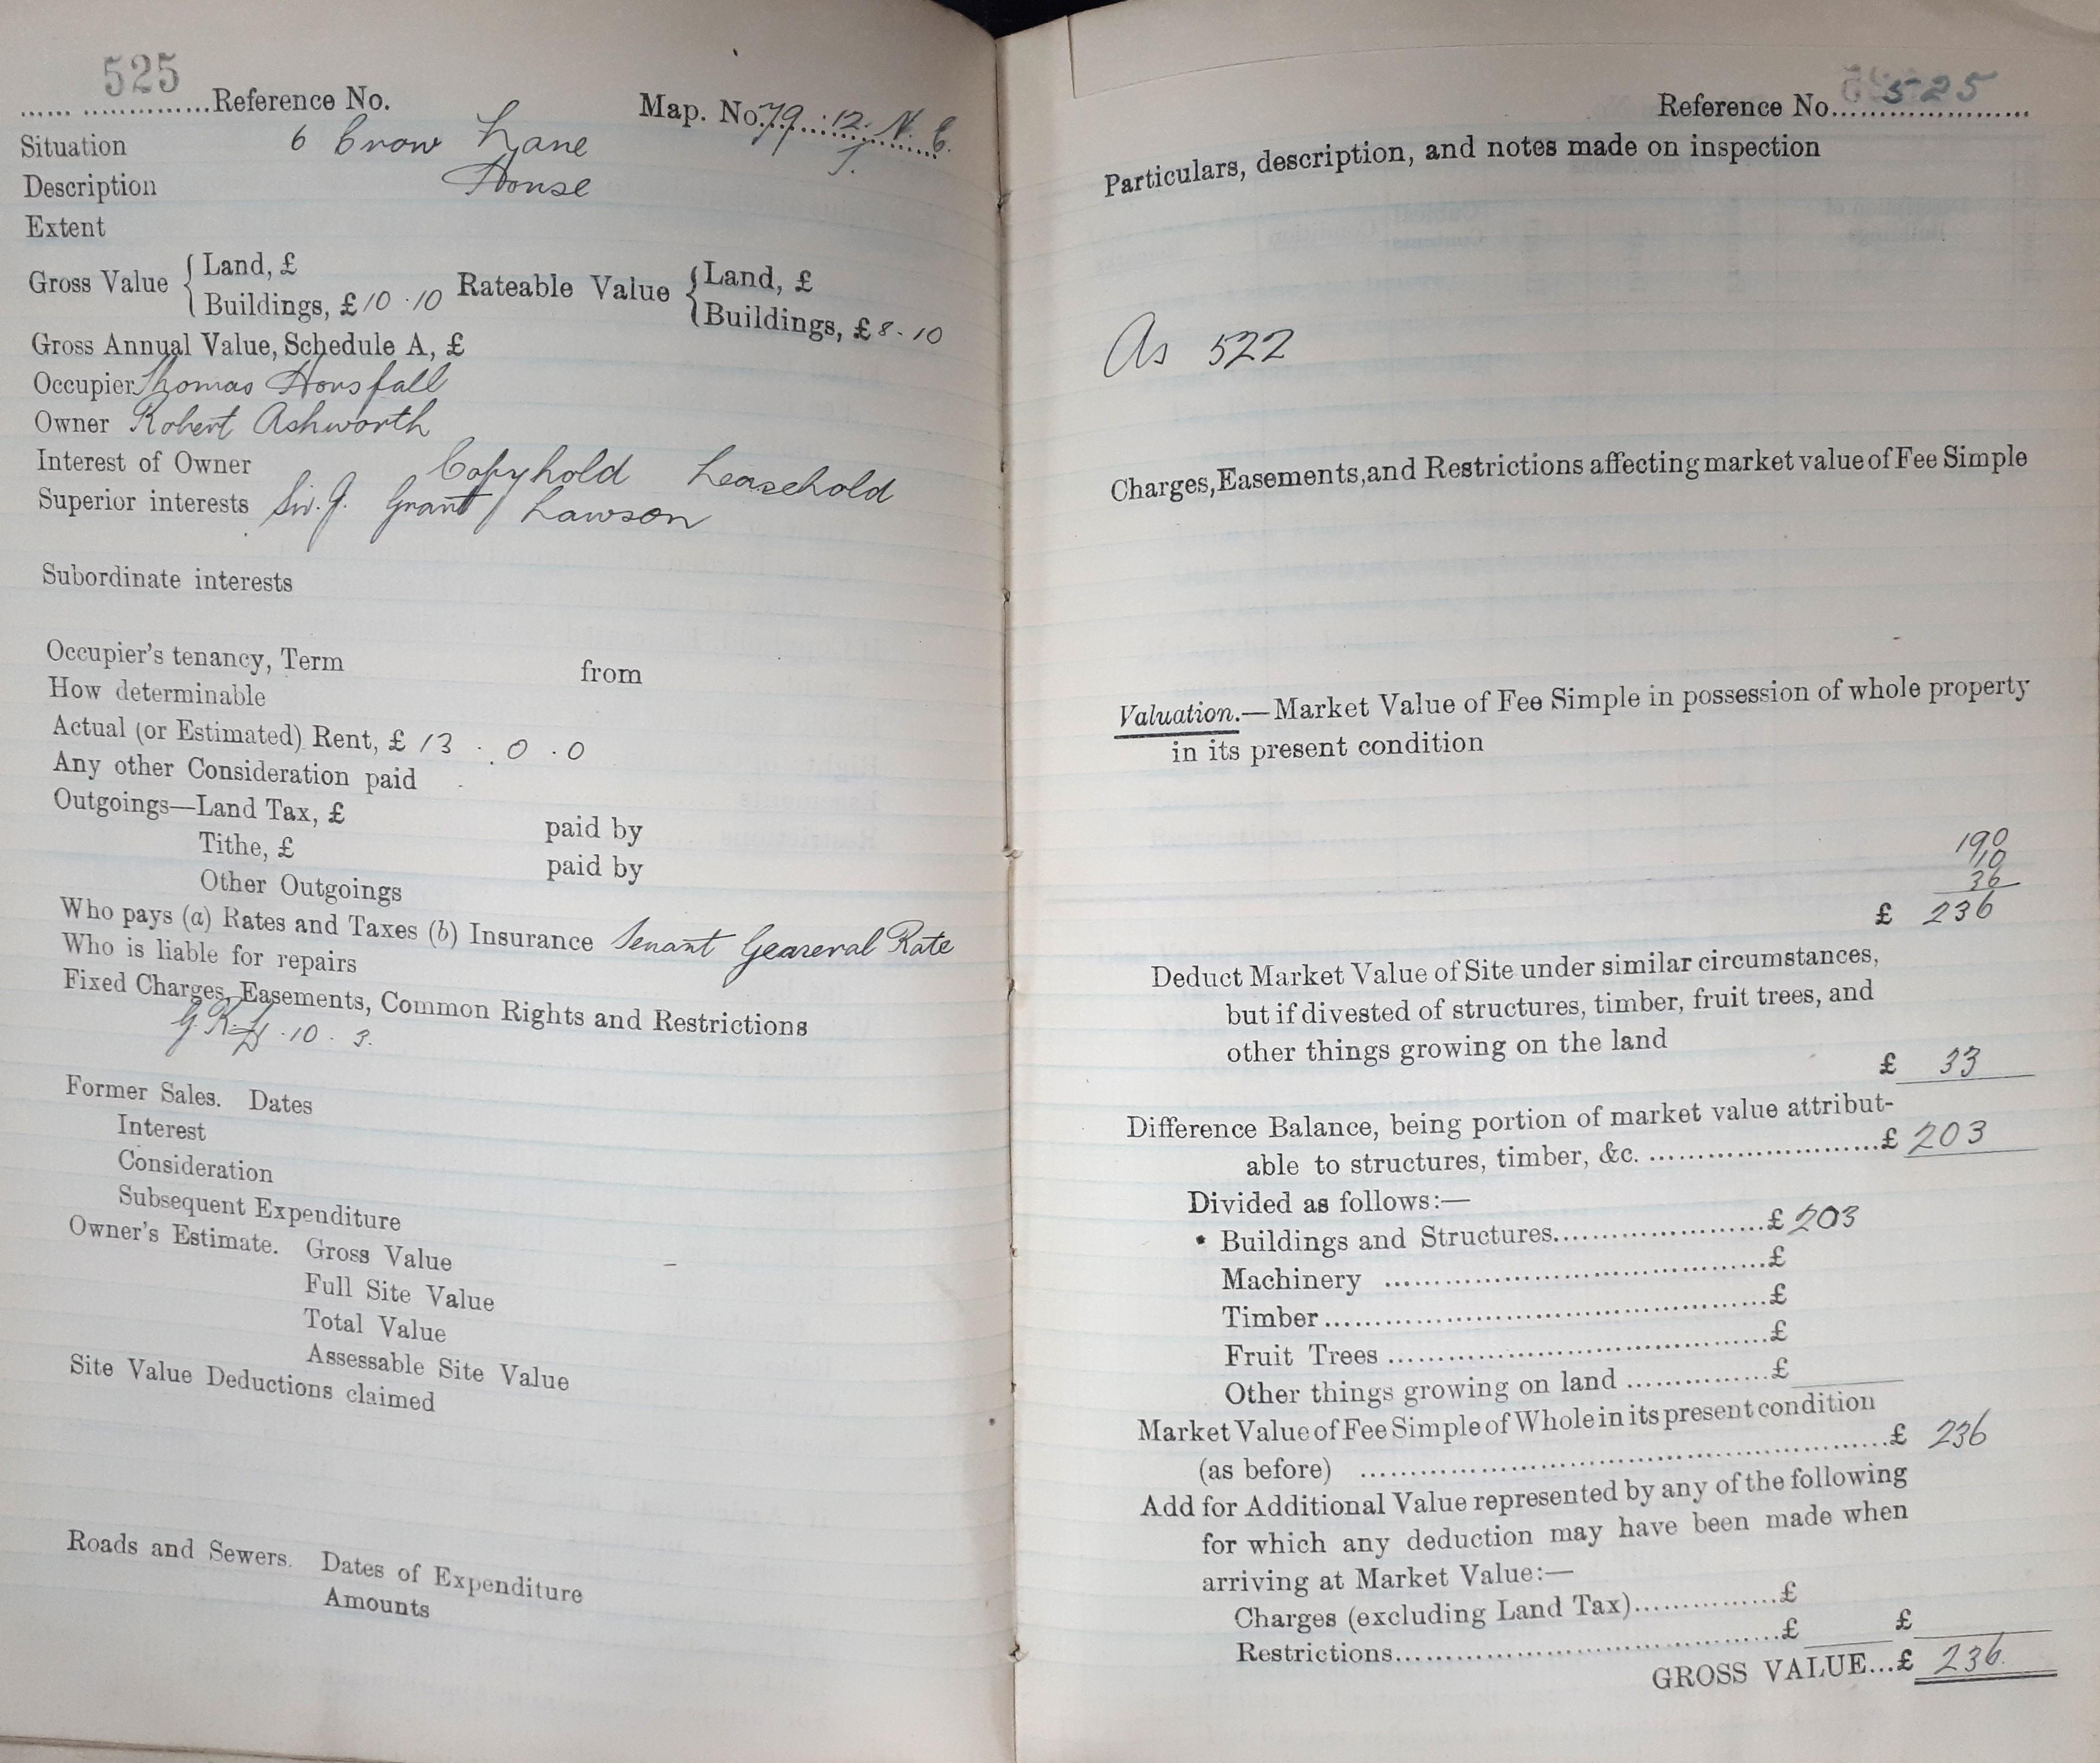 525
...... ...............Reference No.
Map. No. 79 : 12: N. E.
Situation 6 Crow Lane
Description House
Extent
Gross Value { Land, £
Buildings, £10 . 10
Rateable Value { Land, £
Buildings, £8 . 10
Gross Annual Value, Schedule A, £
Occupier Thomas Horsfall
Owner Robert Ashworth
Interest of Owner Copyhold Leasehold
Superior interests Sir. J. Grant Lawson
Subordinate interests
Occupier's tenancy, Term from
How determinable
Actual (or Estimated) Rent, £ 13 . 0 . 0
Any other Consideration paid
Outgoings—Land Tax, £ paid by
Tithe, £ paid by
Other Outgoings
Who pays (a) Rates and Taxes (b) Insurance Tenant Geareral Rate
Who is liable for repairs
Fixed Charges, Easements, Common Rights and Restrictions
G. R. . 10 . 3.
Former Sales. Dates
Interest
Consideration
Subsequent Expenditure
Owner's Estimate. Gross Value
Full Site Value
Total Value
Assessable Site Value
Site Value Deductions claimed
Roads and Sewers. Dates of Expenditure
Amounts
Reference No. 525
Particulars, description, and notes made on inspection
As 522
Charges, Easements, and Restrictions affecting market value of Fee Simple
Valuation.—Market Value of Fee Simple in possession of whole property
in its present condition
190
10
36
£ 236
Deduct Market Value of Site under similar circumstances,
but if divested of structures, timber, fruit trees, and
other things growing on the land
£ 33
Difference Balance, being portion of market value attribut-
able to structures, timber, &c. ........................£ 203
Divided as follows:—
• Buildings and Structures......................£ 203
Machinery .......................................£
Timber.............................................£
Fruit Trees .......................................£
Other things growing on land ...............£
Market Value of Fee Simple of Whole in its present condition
(as before) .......................................................£ 236
Add for Additional Value represented by any of the following
for which any deduction may have been made when
arriving at Market Value:—
Charges (excluding Land Tax)...............£
Restrictions..........................................£ £
GROSS VALUE...£ 236.